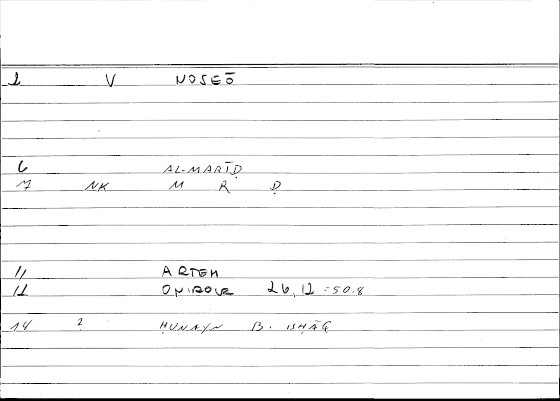 1 V NOSEŌ
6 AL-MARĪḌ
7 NK M R Ḍ
11 ARTEM
12 ONIROCR 26,12 = 50.8
14 2 ḤUNAYN B. ISḤĀQ